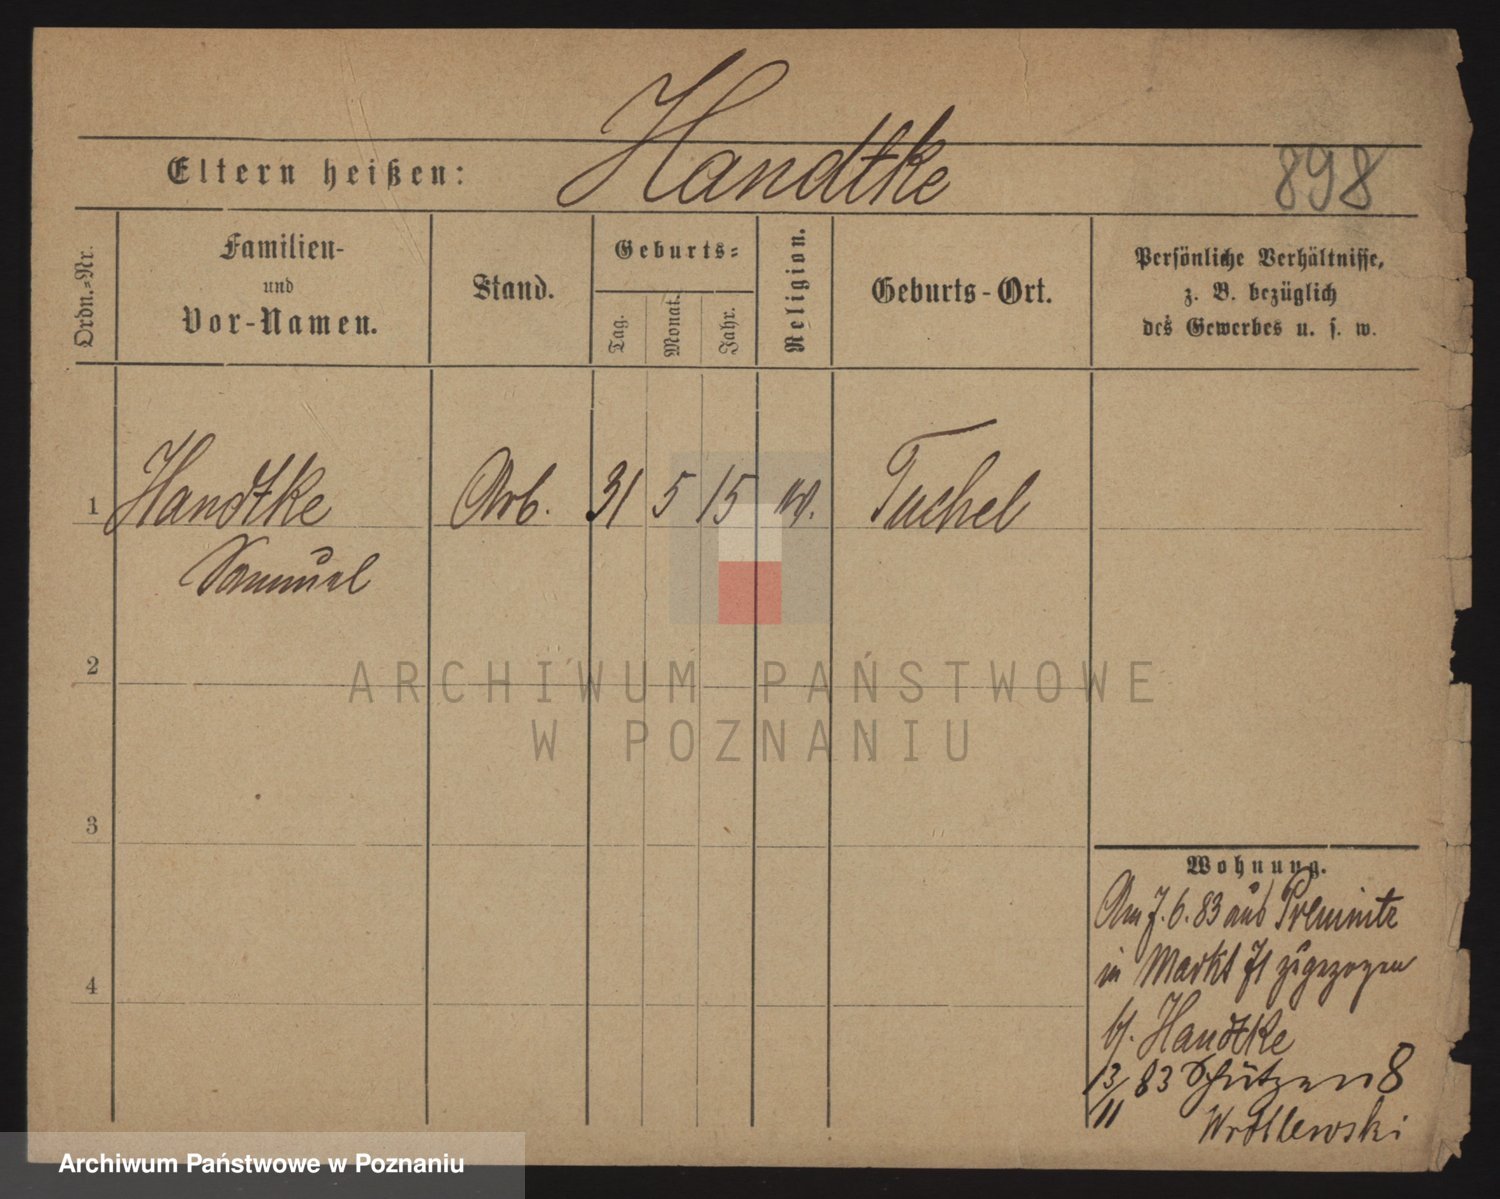 Handtke
Eltern heißen:
898
Ordn.-Nr.
Familien-
und
Vor-Namen.
Stand.
Geburts-
Tag.
Monat.
Jahr.
Religion.
Geburts-Ort.
Persönliche Verhältnisse,
z. B. bezüglich
des Gewerbes u. s. w.
1 Handtke Arb. 31 5 15 Tuchel
Samuel
2
3
4
ARCHIWUM PAŃSTWOWE
W POZNANIU
Wohnung.
Am 7. 6. 83 aus
in Markt 71 zugezogen
b/. Handtke
13/11 83 Schützen 8
Wrotlewski
Archiwum Państwowe w Poznaniu